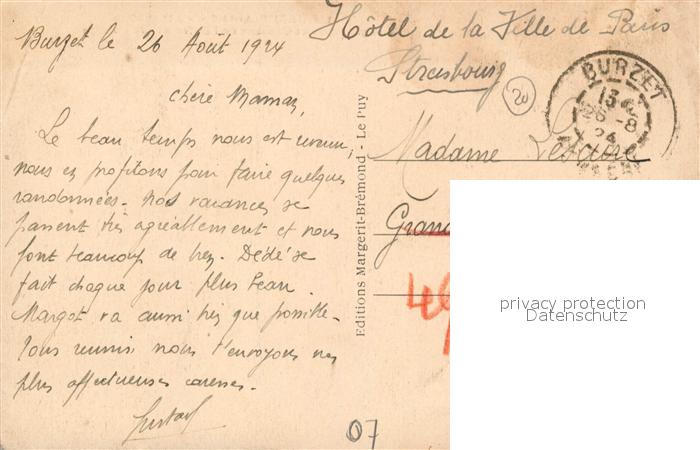 Burzet le 26 Août 1924
Hôtel de la Ville de Paris
Strasbourg
20
BURZET
13
26-8
24
chère Maman,
Le beau temps nous est revenu,
nous en profitons pour faire quelques
randonnées. Nos vacances se
passent très agréablement et nous
font beaucoup de bien. Dédé se
fait chaque jour plus beau.
Margot va aussi bien que possible.
Tous reunis nous t'envoyons nos
plus affectueuses caresses.
Madame
Grand
Editions Margerit-Brémond - Le Puy
07
privacy protection
Datenschutz